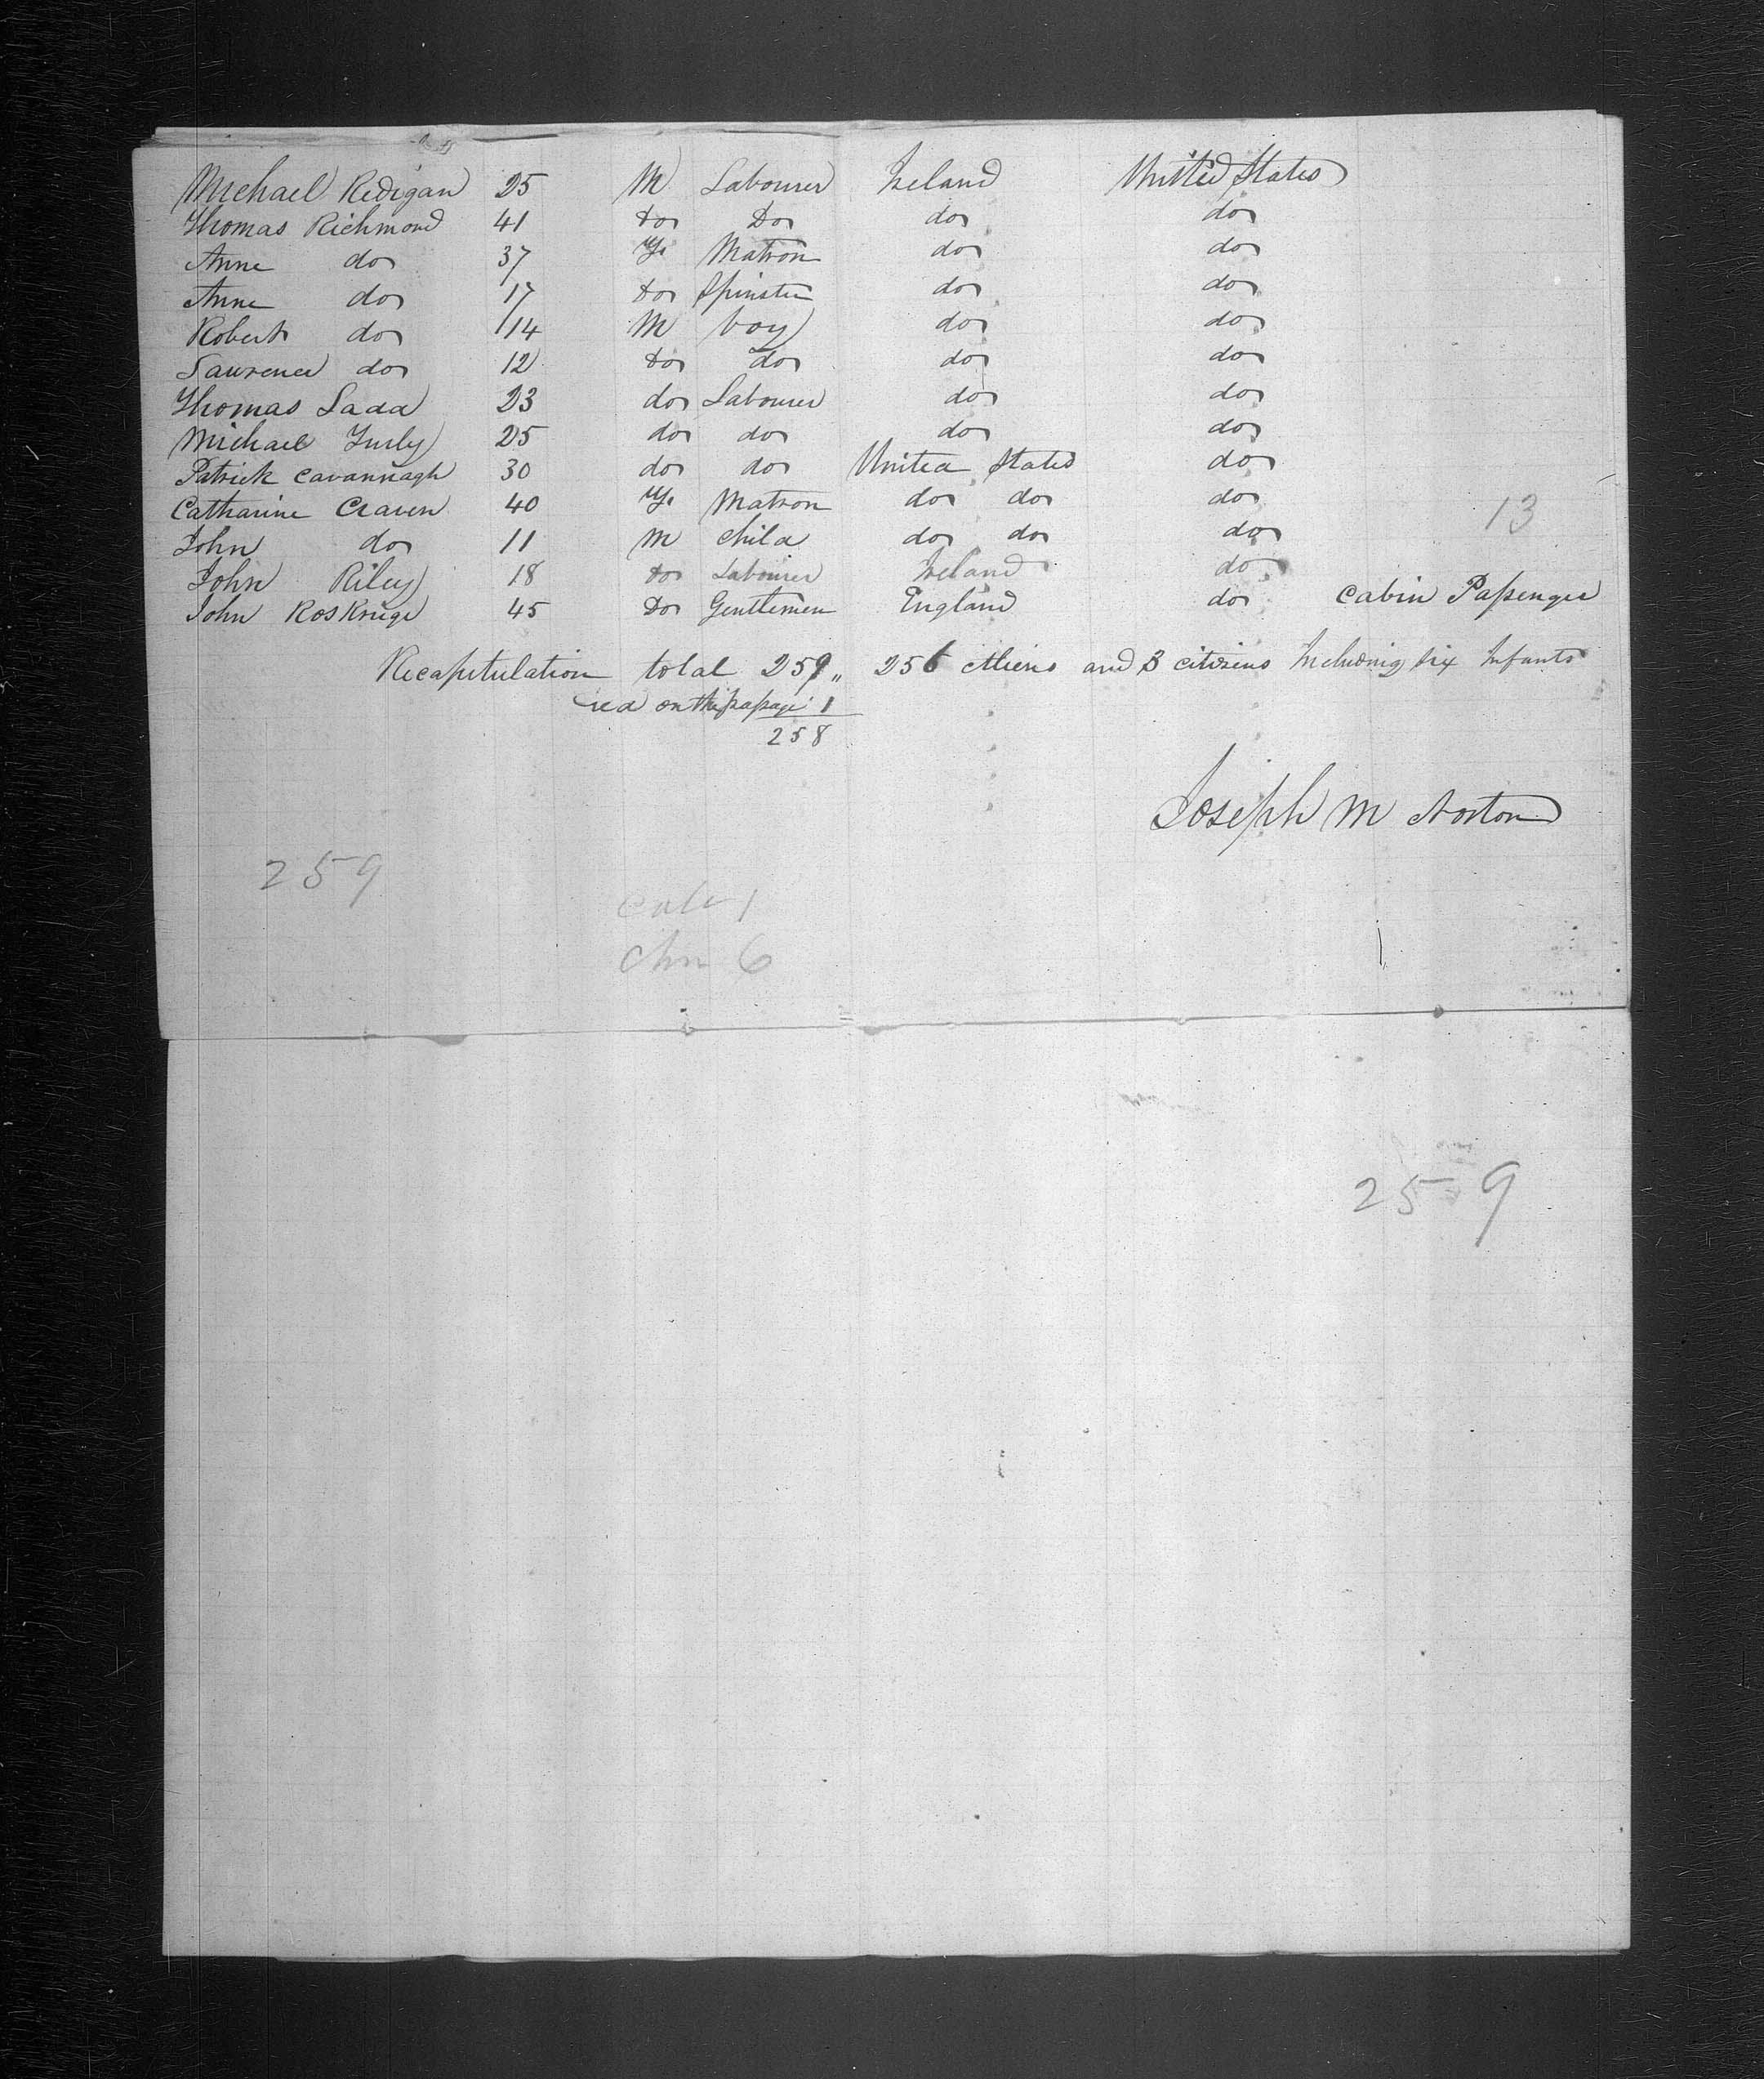 Michael Redigan 25 M Labourer Ireland United States
Thomas Richmond 41 Do Do do do
Anne do 37 F. Matron do do
Anne do 17 Do Spinster do do
Robert do 14 M boy do do
Laurence do 12 Do do do do
Thomas Lada 23 do Labourer do do
Michael Furly 25 do do do do
Patrick Cavannagh 30 do do United States do
Catharine Craven 40 F. Matron do do do
13
John do 11 M Child do do do
John Riley 18 Do Labourer Ireland do
John Roskruge 45 Do Gentlemen England do Cabin Passenger
Recapitulation total 259 " 256 Aliens and 3 citizens Including six Infants
ied on the passage 1
258
Joseph M Norton
259
1
Chn 6
259